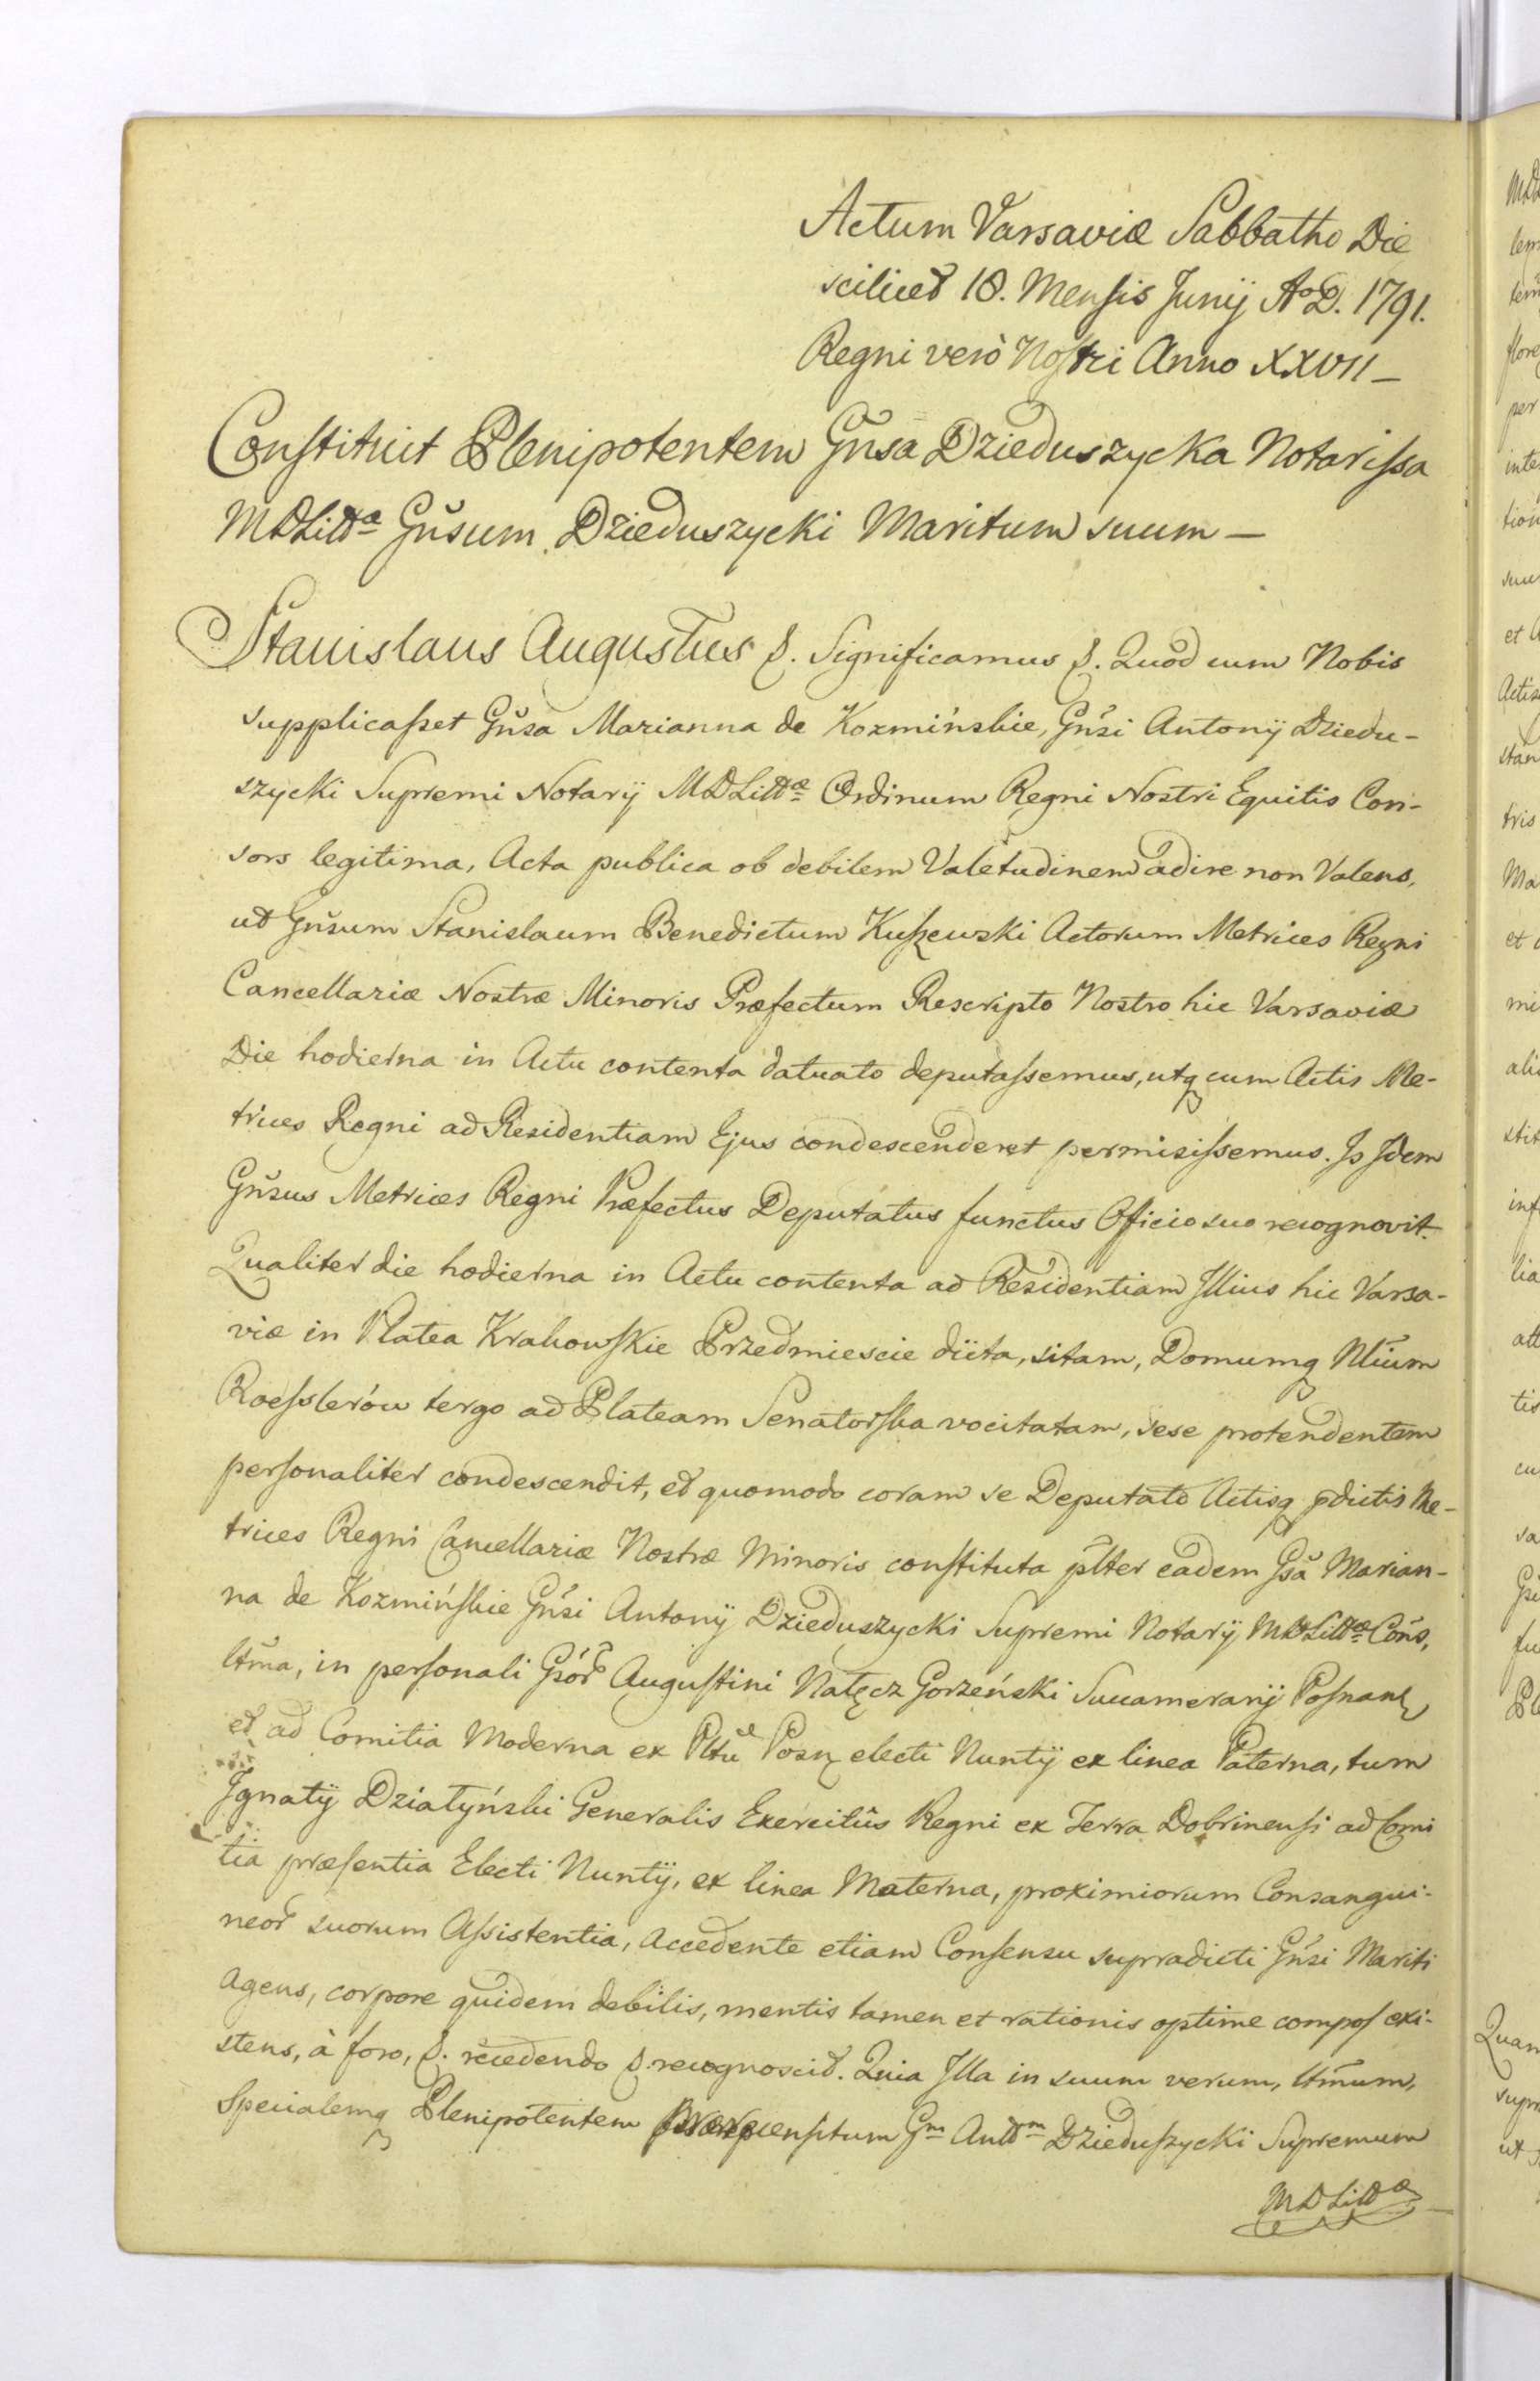 Actum Varsaviæ Sabbatho Die
scilicet 18. Mensis Junij AoD. 1791.
Regni verò Nostri Anno XXVII –
Constituit Plenipotentem Gňsa Dzieduszycka Notarissa
MDLittæ Gňsum Dzieduszycki Maritum suum –
Stanislaus Augustus &. Significamus &. Quod cum Nobis
supplicasset Gňsa Marianna de Kozmińskie, Gňsi Antonij Dziedu-
szycki Supremi Notarij MDLittæ Ordinum Regni Nostri Equitis Con-
sors legitima, Acta publica ob debilem Valetudinem adire non Valens,
ut Gňsum Stanislaum Benedictum Kuszewski Actorum Metrices Regni
Cancellariæ Nostræ Minoris Præfectum Rescripto Nostro hic Varsaviæ
Die hodierna in Actu contenta datuato deputassemus, utq cum Actis Me-
trices Regni ad Residentiam Ejus condescenderet permisissemus. Is Idem
Gňsus Metrices Regni Præfectus Deputatus functus Officio suo recognovit.
Qualiter die hodierna in Actu contenta ad Residentiam Illius hic Varsa-
viæ in Platea Krakowskie Przedmiescie dicta, sitam, Domumq Nlium
Roesslerów tergo ad Plateam Senatorska vocitatam, sese protendentem
personaliter condescendit, et quomodo coram se Deputato Actisq p̄dictis Me-
trices Regni Cancellariæ Nostræ Minoris constituta p̄lter eadem Gsa Marian-
na de Kozmińskie Gňsi Antonij Dzieduszycki Supremi Notarij MDLittæ Cons,
ltm̄a, in personali Gsór Augustini Nałęcz Gorzeński Succamerarij Posnanę
et ad Comitia Moderna ex Pltu Posnę electi Nuntij ex linea Paterna, tum
Ignatij Działyński Generalis Exercitûs Regni ex Terra Dobrinensi ad Comi
tia præsentia Electi Nuntij, ex linea Materna, proximiorum Consangui-
neor suorum Assistentia, accedente etiam Consensu supradicti Gňsi Mariti
agens, corpore quidem debilis, mentis tamen et rationis optime compos exi-
stens, à foro, &. recedendo &. recognoscit. Quia Illa in suum verum, ltm̄um,
Specialemq Plenipotentem præcensitum Gm Anttm Dzieduszycki Supremum
MDLittæ